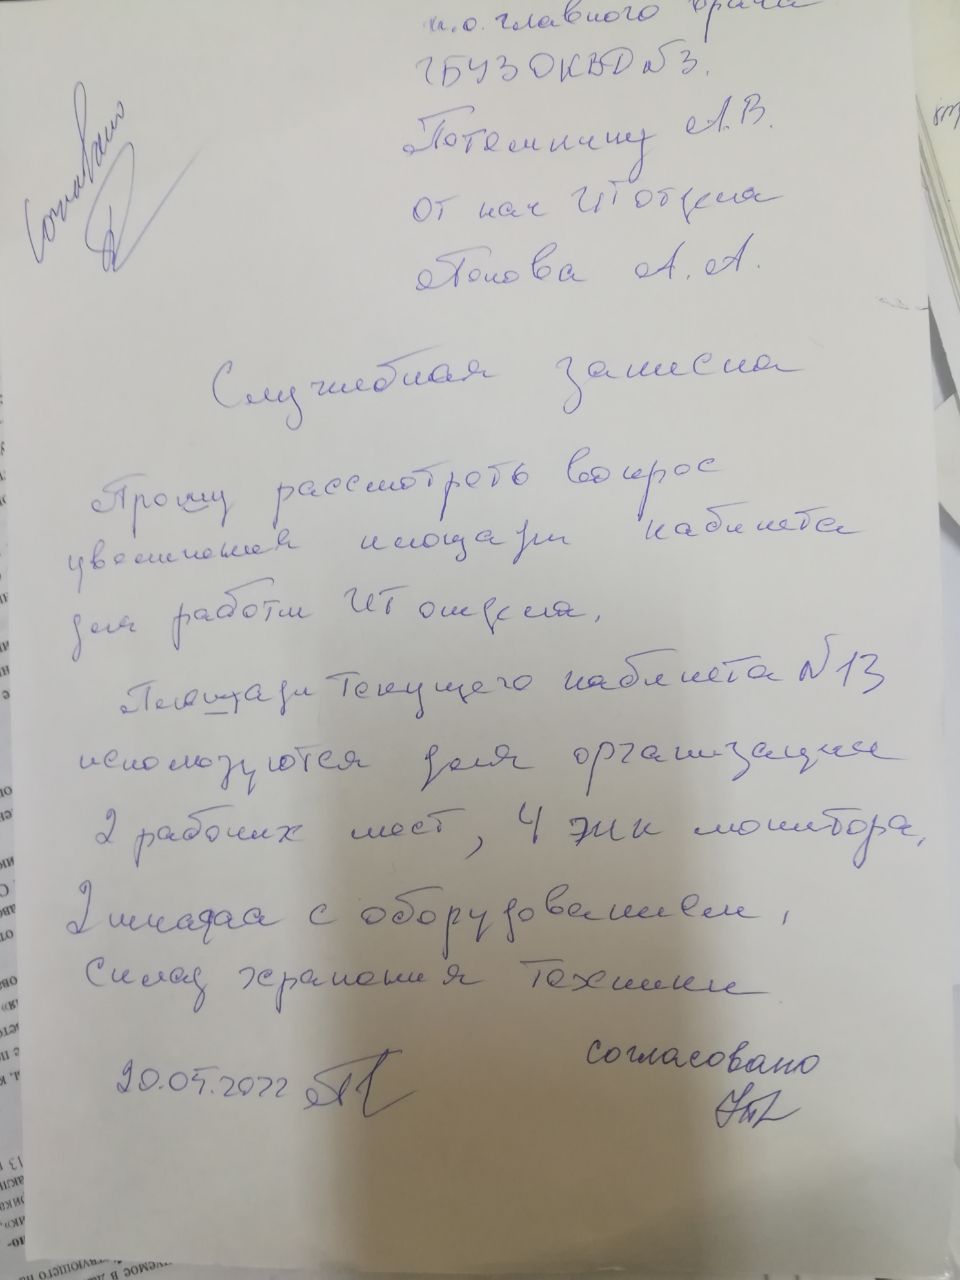 и.о. главного врача
ГБУЗ ОКВД №3.
Потемкину А.В.
от нач ИТ отдела
Попова А.А.
Согласовано
Служебная записка
Прошу рассмотреть вопрос
увеличения площади кабинета
для работы ИТ отдела.
Площади текущего кабинета №13
используются для организации
2 рабочих мест, 4 ЖК монитора,
2 шкафа с оборудованием,
Склад хранения техники
20.05.2022
согласовано